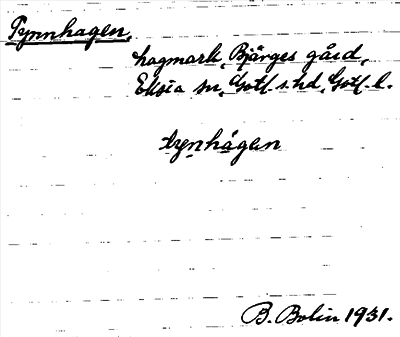 Tynnhagen,
hagmark, Bjärges gård,
Eksta sn, Gotl. s. hd, Gotl. l.
tynhágen
B. Bolin 1931.